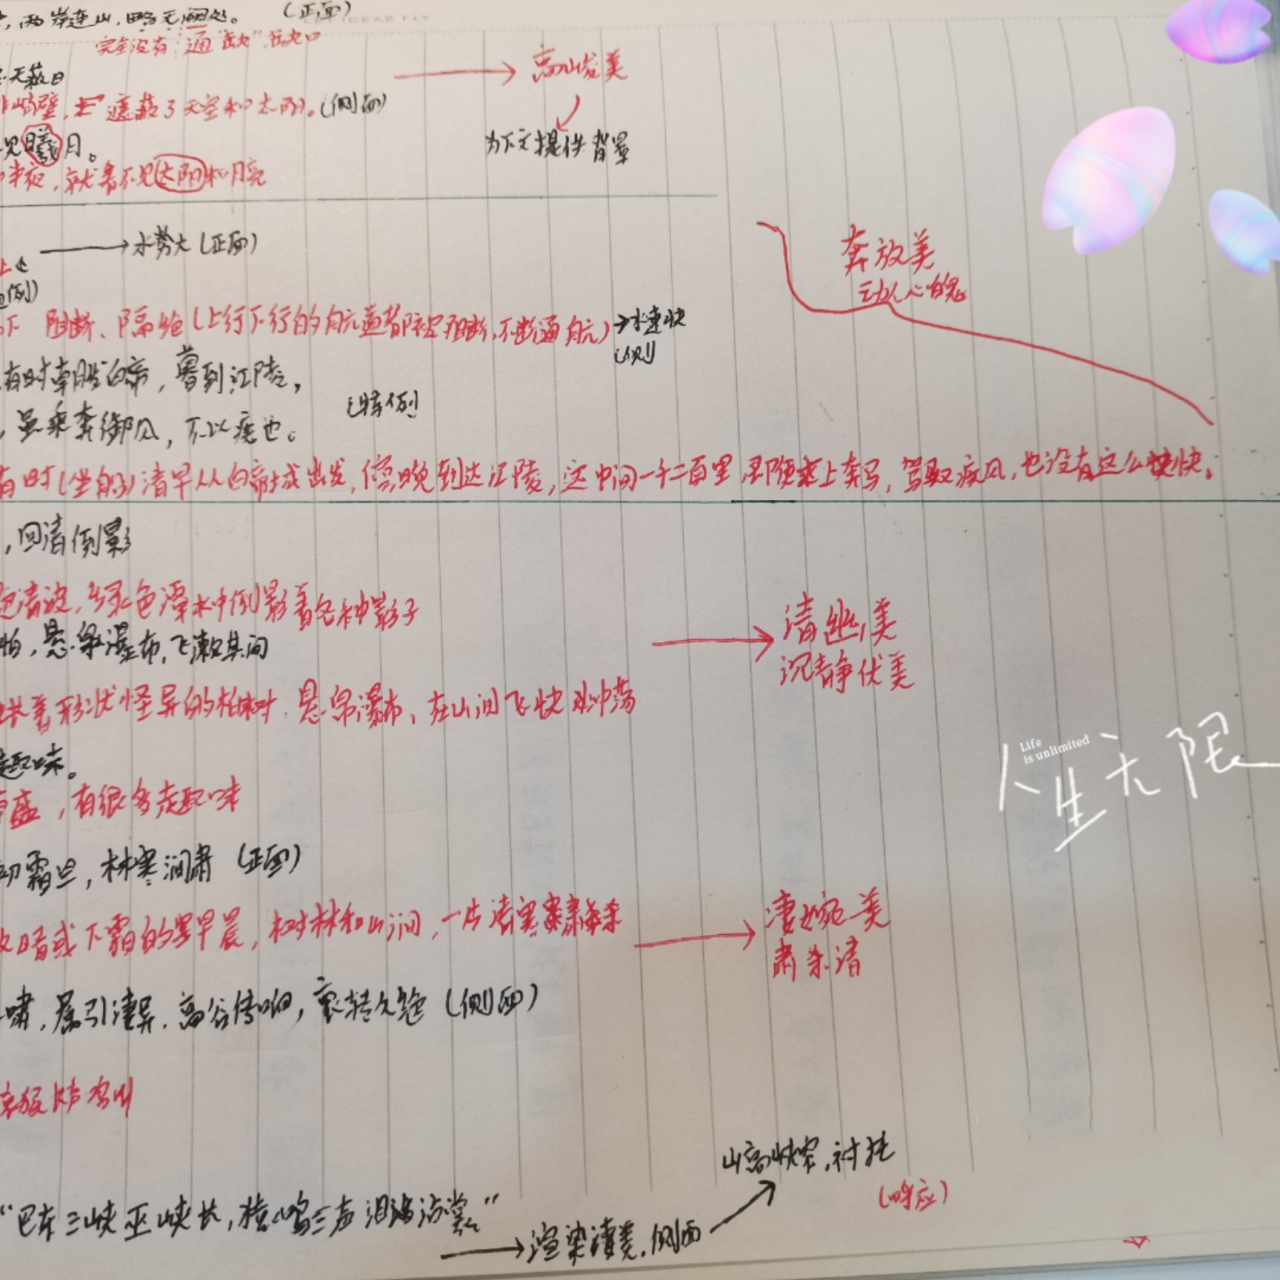 两岸连山,略无阙处。(正面)
完全没有 通"缺",缺口
天蔽日
高山优美
峭壁, 遮蔽了天空和太阳。(侧面)
为下文提供背景
见曦月。
半夜,就看不见太阳和月亮
水势大(正面)
奔放美
动人心魄
阻断、隔绝(上行下行的航道都阻断,不能通航)
水速快
(侧)
有时朝发白帝,暮到江陵,
(特例)
,虽乘奔御风,不以疾也。
有时(坐船)清早从白帝城出发,傍晚到达江陵,这中间一千二百里,即使乘上奔马,驾驭疾风,也没有这么快。
,回清倒影
清波,绿色潭水中倒影着各种影子
清幽美
沉静优美
柏,悬泉瀑布,飞漱其间
着形状怪异的柏树,悬泉瀑布,在山间飞快冲荡
趣味。
盛,有很多趣味
人生无限
Life
is unlimited
初霜旦,林寒涧肃(正面)
晴或下霜的早晨,树林和山涧,一片清寒肃杀
凄婉美
肃杀清
啸,属引凄异,高谷传响,哀转久绝(侧面)
山高峡窄,衬托
(呼应)
"巴东三峡巫峡长,猿鸣三声泪沾裳"
渲染凄美,侧面